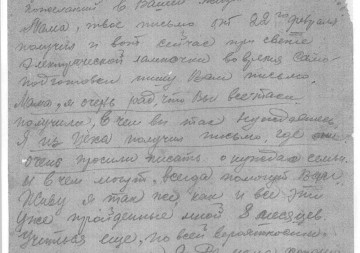 пожеланий в Вашей
Мама, твое письмо от 22го февраля
получил и вот сейчас при свете
электрической лампочки во время само-
подготовки пишу Вам письмо.
Мама, я очень рад, что Вы все-таки
получили, в чем вы так нуждались.
Я из получил письмо, где
очень просили писать о нуждах семьи
и в чем могут, всегда помогут Вам.
Живу я так же, как и все эти
уже пройденные мной 8 месяцев.
Учиться еще, по всей вероятности